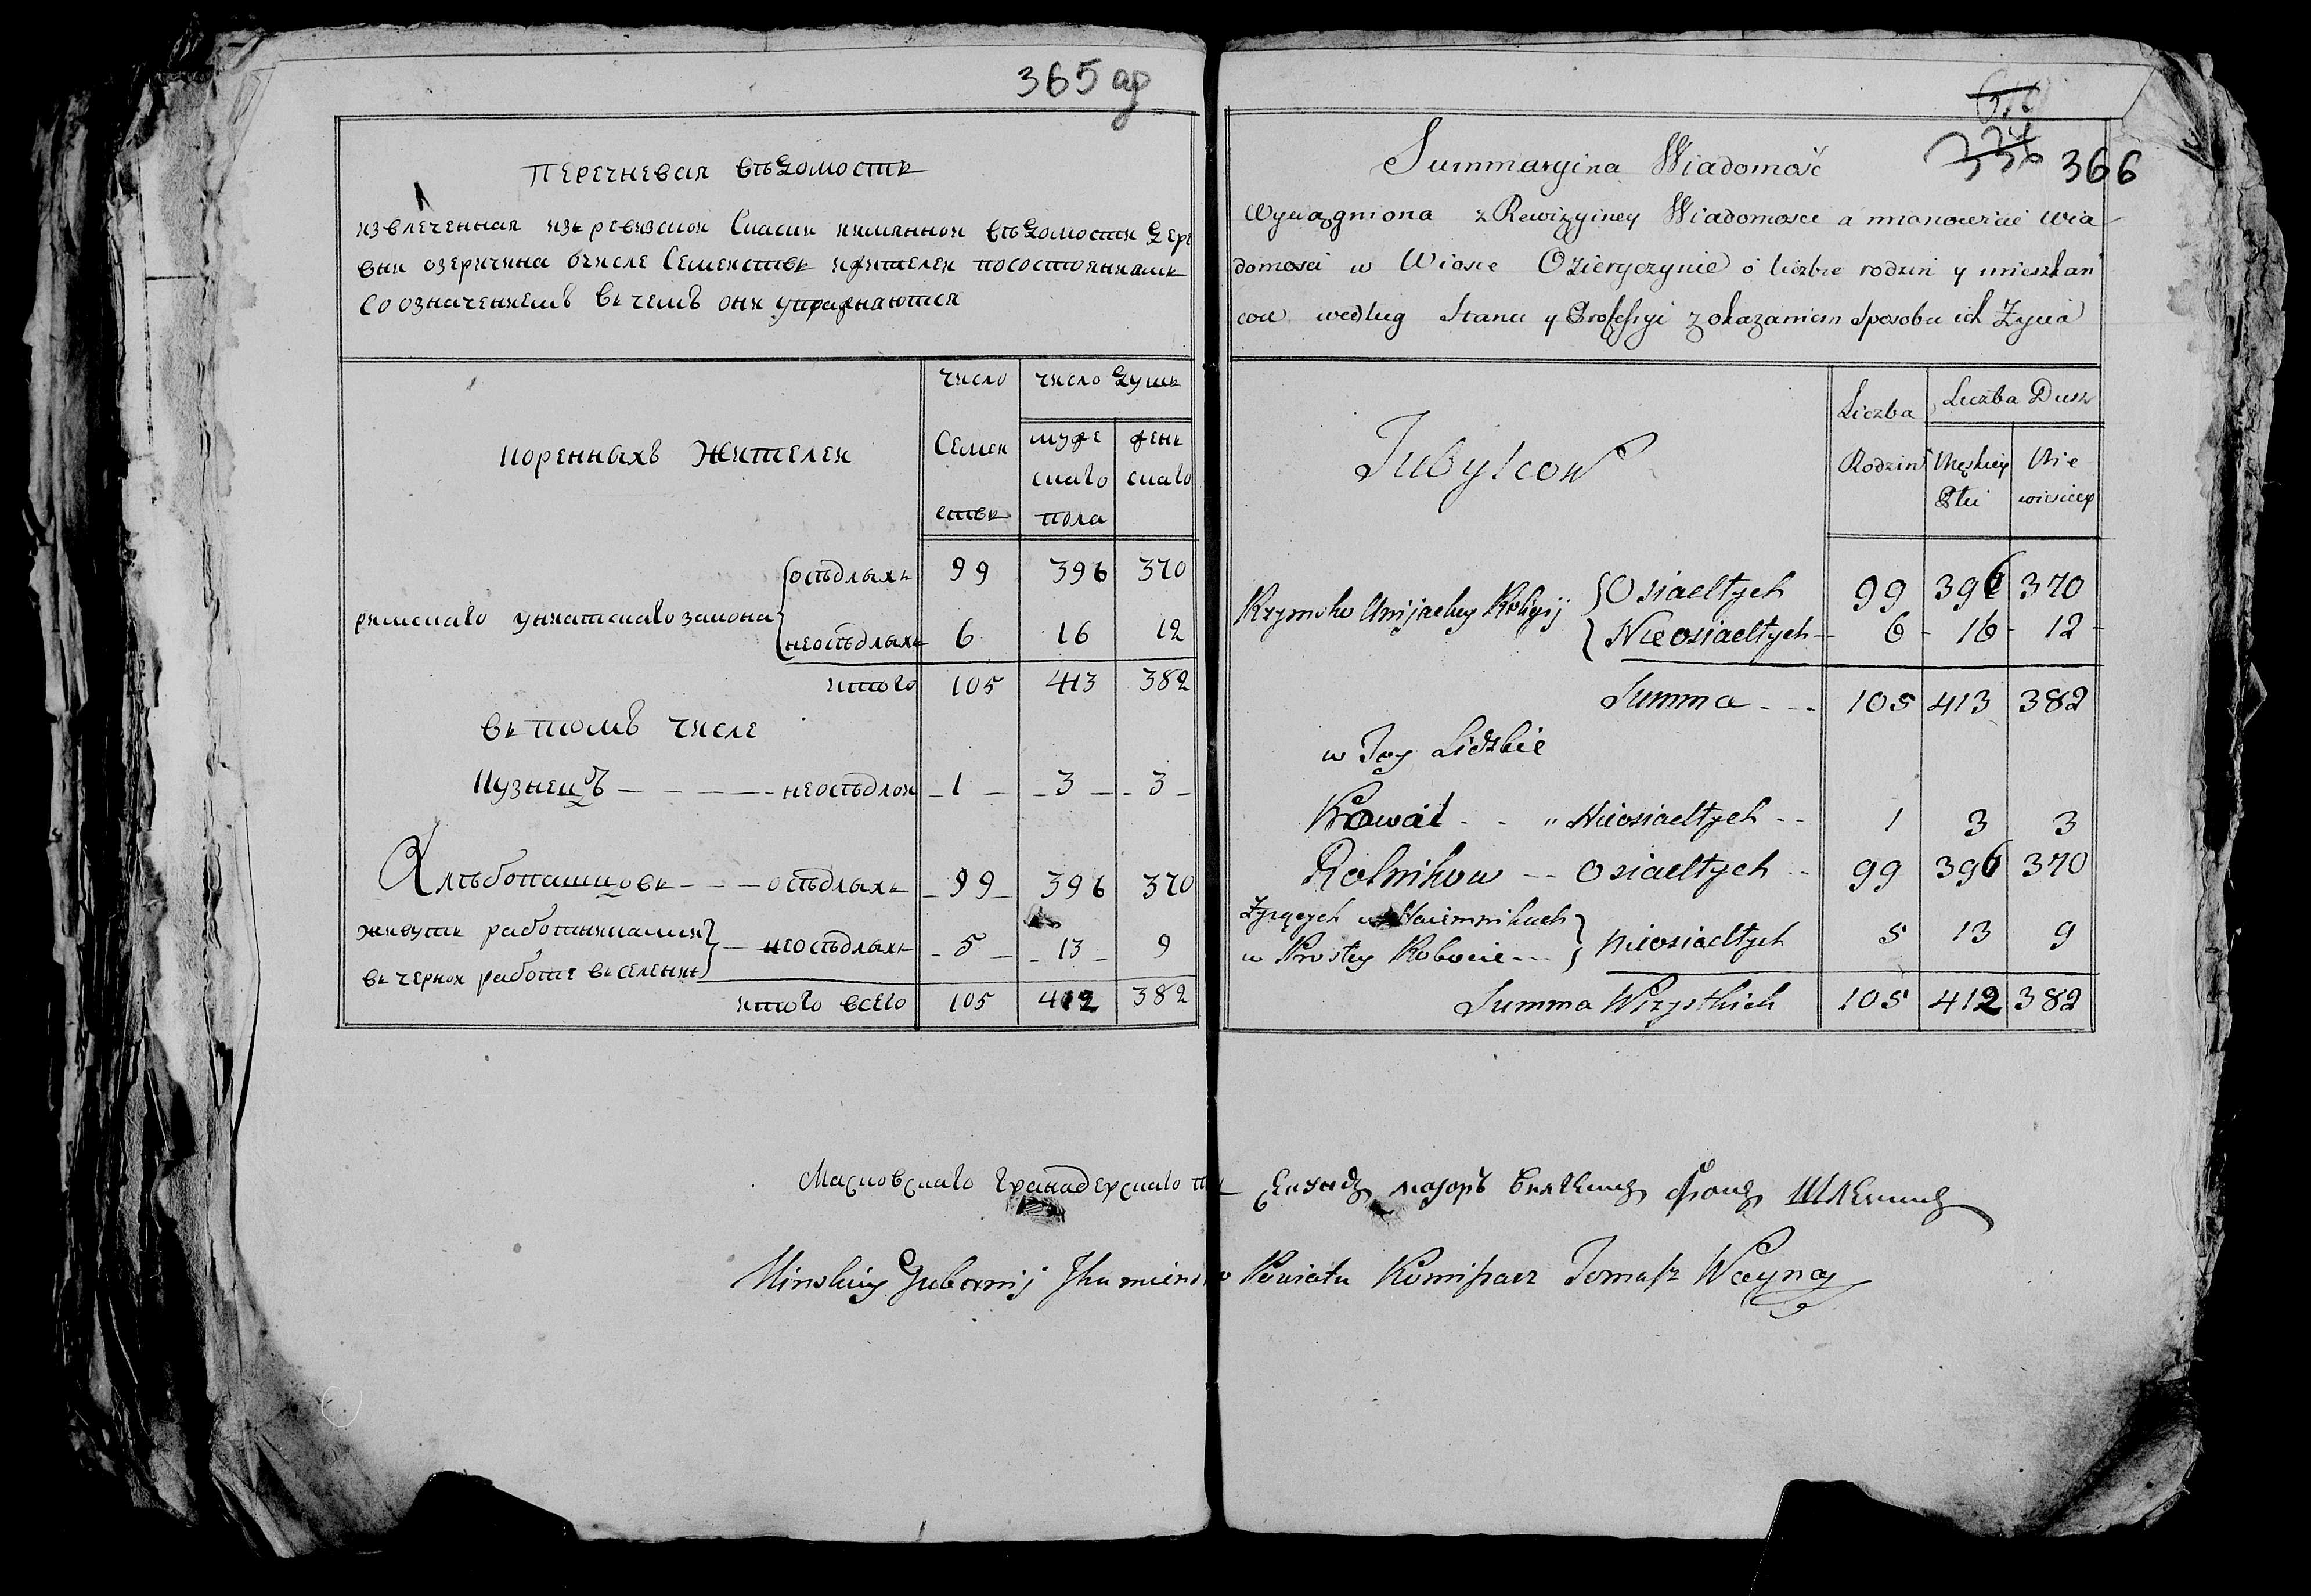 365 ар
Перечневая вѣдомость
извлеченная изь ревизской Сказки имянной вѣдомости дере
вни озеричина очисле Семействь ижителей посостояниямь
Со означениемъ вь чемъ они упражняются
Коренныхъ Жителей
число
Семей
ствь
число душь
муже
скаго
пола
жень
скаго
римскаго униатскаго закона
осѣдлыхь 99 396 370
неосѣдлыхь 6 16 12
итого 105 413 382
вь томъ числе
Кузнецъ — — — — неосѣдлой 1 3 3
Хлѣбопашцовь — — — осѣдлыхь 99 396 370
живуть работниками
вь черной работе вь селении
неосѣдлыхь 5 13 9
итого всего 105 412 382
336 366
Summaryina Wiadomość
Wyciągniona z Rewizyiney Wiadomosci a mianowicie wia
domosci w Wiosce Ozieryczynie o liczbie rodzin y mieszkań
cow według Stanu y Professyi z okazaniem Sposobu ich Życia
Liczba
Rodzin
Liczba Dusz
Męskiey
Płci
Nie
wiesciey
Rzymsko Unijackey Religij
Osiadłych 99 396 370
Nieosiadłych 6 16 12
Summa 105 413 382
w Tey Liczbie
Kowal Nieosiadłych 1 3 3
Rolnikow Osiadłych 99 396 370
Żyjących w Naiemnikach
w Prostey Robocie
nieosiadłych 5 13 9
Summa Wszystkich 105 412 382
Московскаго Гранадерскаго Секундъ маиоръ фонъ
Minskiey Gubernij Jhumiensko Powiatu Komissarz Tomasz Wayna